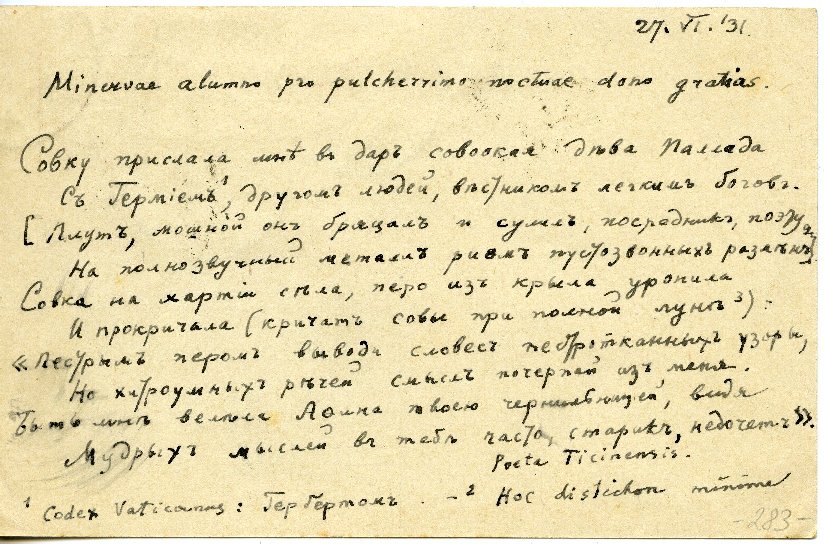 27. VI. '31.
Minervae alumno pro pulcherrimo noctuae dono gratias.
Совку прислала мнѣ въ даръ совоокая дѣва Паллада
Съ Герміемъ¹, другомъ людей, вѣстникомъ легкимъ боговъ.
[Плутъ, мошной онъ бряцалъ и сулилъ, посредникъ, поэту
На полнозвучный металлъ риѳмъ пустозвонныхъ размѣнъ²]
Совка на хартіи сѣла, перо изъ крыла уронила
И прокричала (кричатъ совы при полной лунѣ³):
«Пестрымъ перомъ выводи словесъ пестротканныхъ узоры,
Но хитроумныхъ рѣчей смыслъ почерпай изъ меня.
Быть мнѣ велѣла Аѳина твоею чернильницей, видя
Мудрыхъ мыслей въ тебѣ часто, старикъ, недочетъ».
Poeta Ticinensis.
¹ Codex Vaticanus: Гербертомъ. – ² Hoc distichon minime
-283-